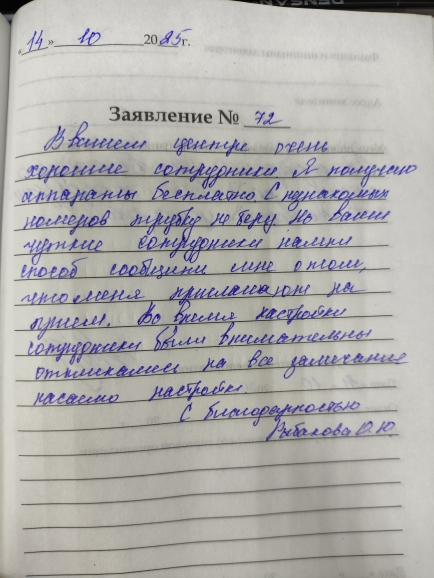 «14» 10 2025г.
Заявление № 72
В вашем центре очень
хорошие сотрудники. Я получаю
аппараты бесплатно. С незнакомых
номеров трубку не беру. Но ваши
чуткие сотрудники нашли
способ сообщить мне о том,
что меня приглашают на
прием. Во время настройки
сотрудники были внимательны
откликались на все замечания
насчет настройки.
С благодарностью
Рыбакова О.Ю.